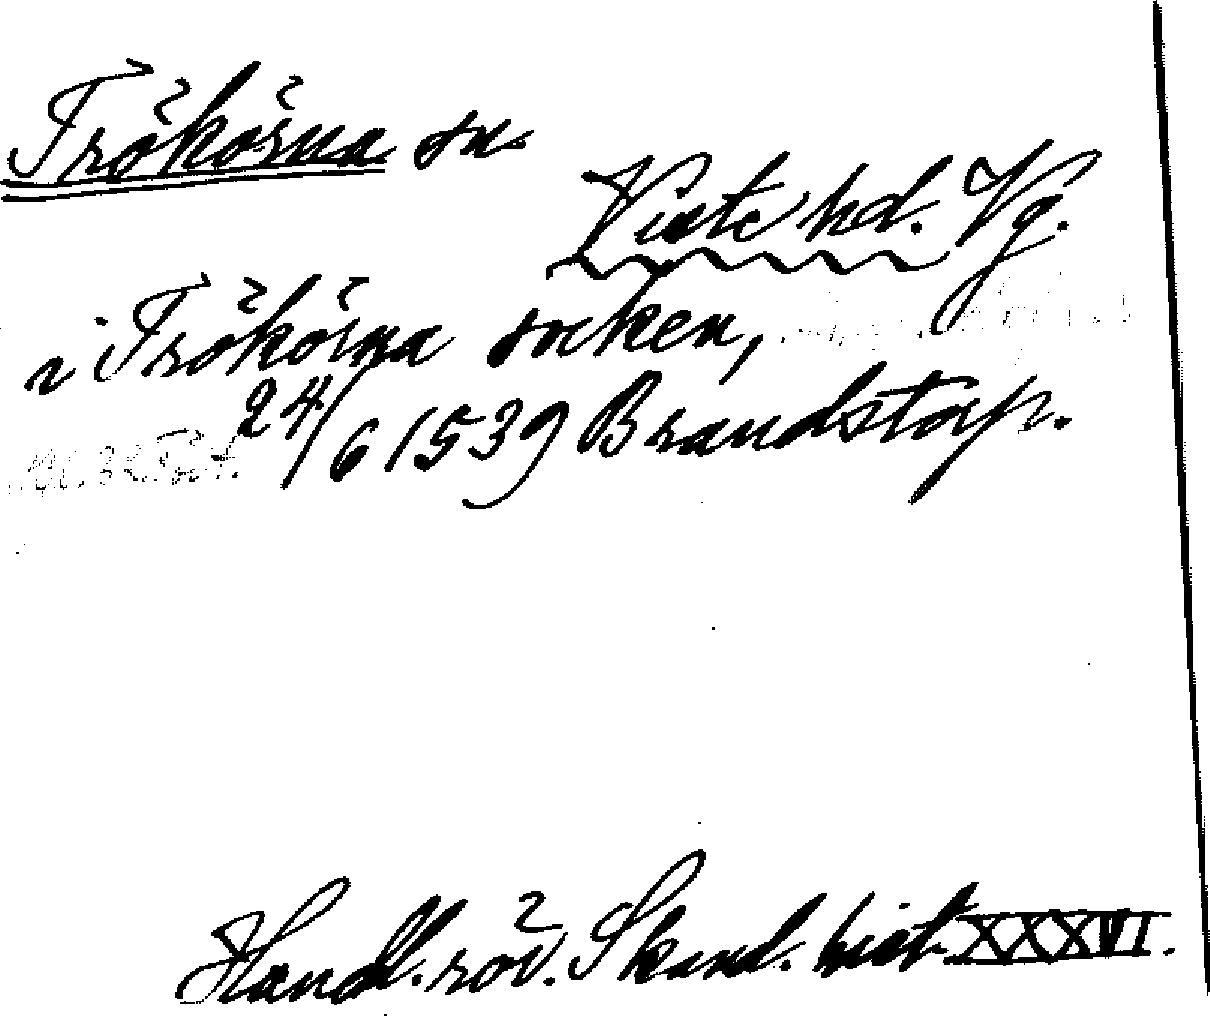 Trökörna sn.
Viste hd. Vg.
i Trökörna socken,
24/6 1539 Brandstorp.
Handl. rör. Skand. hist. XXXVI.